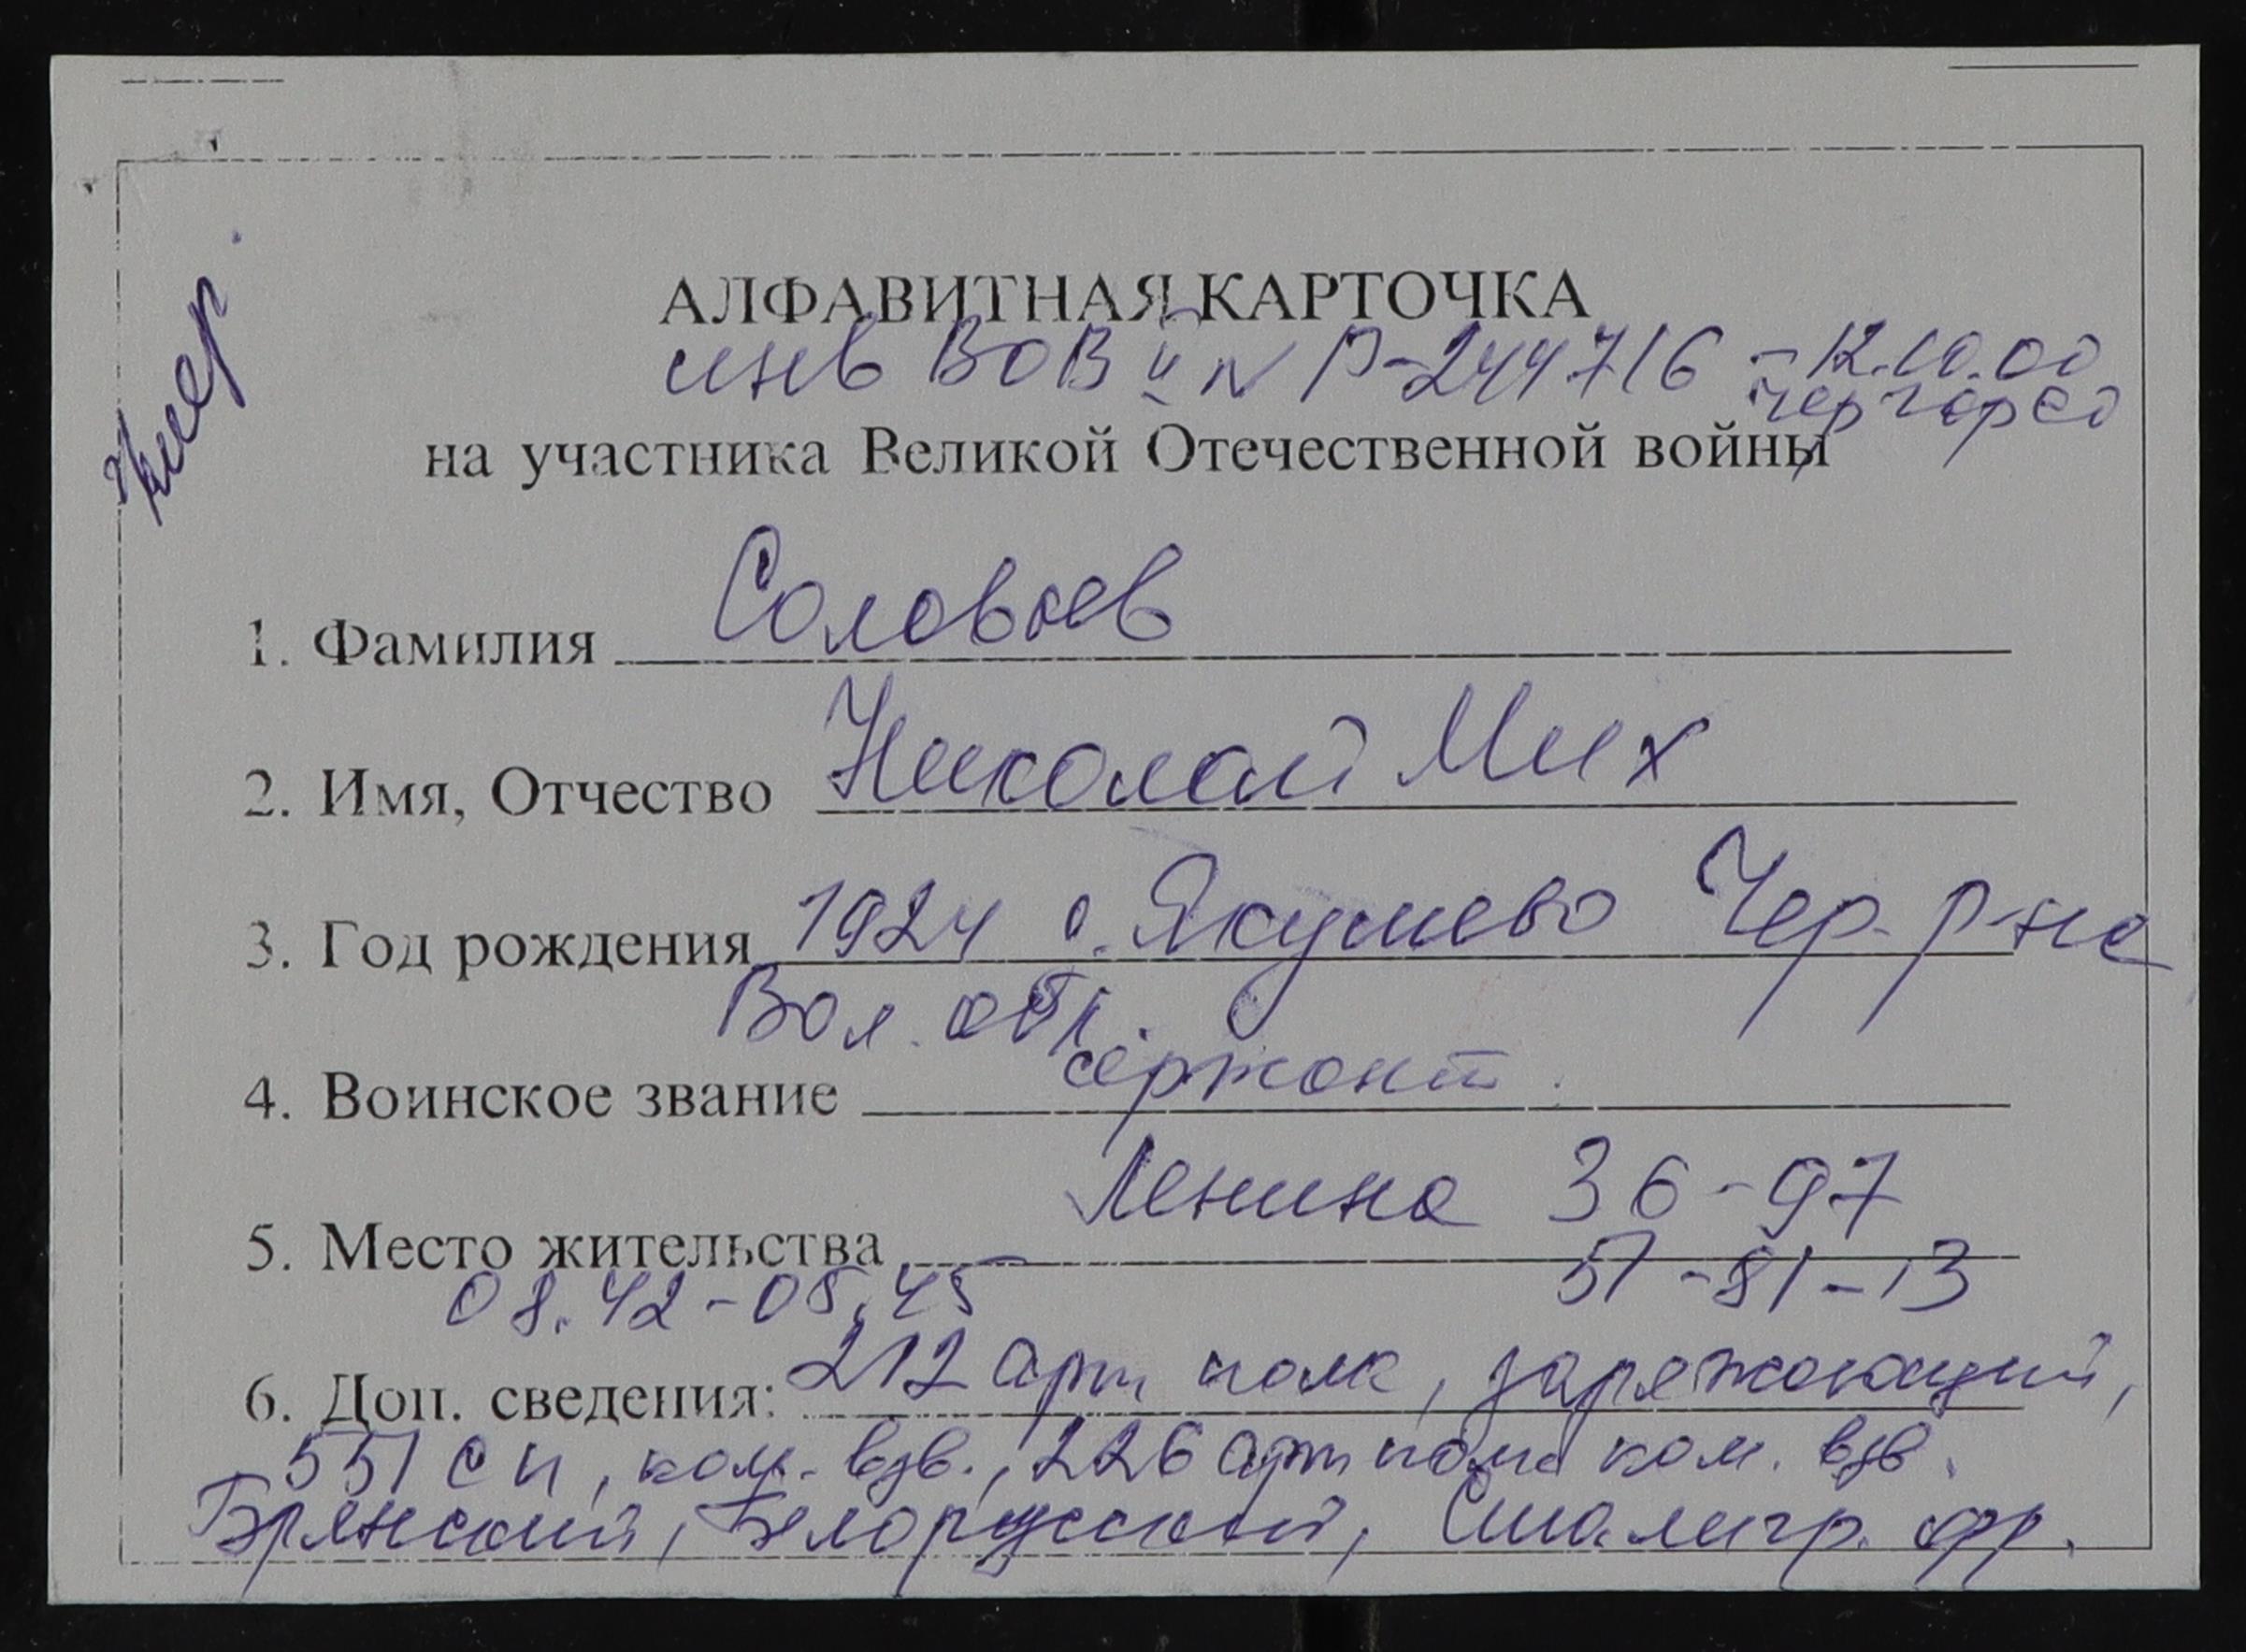 умер.
АЛФАВИТНАЯ КАРТОЧКА
инв ВОВ II гр № Р-244716 - 12.10.00
Чер гор с о
на участника Великой Отечественной войны
1. Фамилия Соловьев
2. Имя, Отчество Николай Мих
3. Год рождения 1924 д. Якушево Чер. р-на
Вол. обл.
4. Воинское звание сержант.
Ленина 36-97
5. Место жительства
51-81-13
08.42-05.45
6. Доп. сведения: 212 арт полк, заряжающий,
551 СП, ком. взв., 226 арт полк ком. взв.
Брянский, Белорусский, Сталингр. фр.